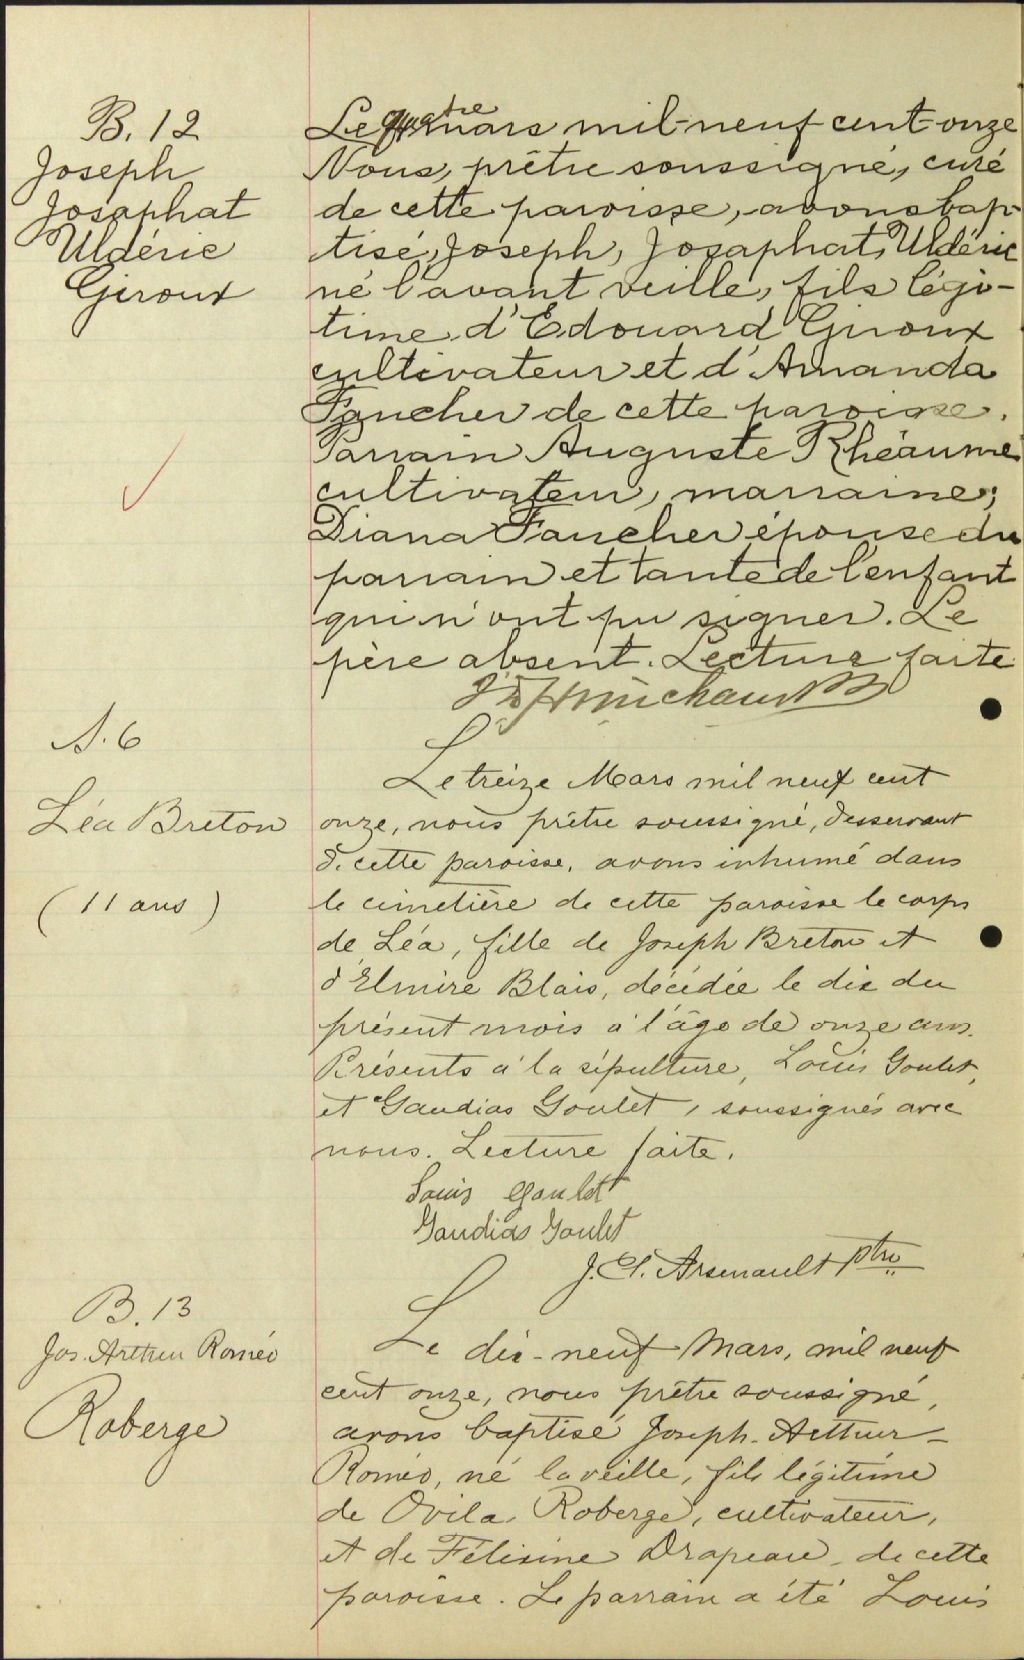 B. 12
Joseph
Josaphat
Uldéric
Giroux
Le quatre mars mil-neuf cent-onze
Nous, prêtre soussigné, curé
de cette paroisse, avons bap-
tisé, Joseph, Josaphat, Uldéric
né l'avant veille, fils légi-
time d'Edouard Giroux
cultivateur et d'Amanda
Faucher de cette paroisse.
Parrain Auguste Rhéaume
cultivateur, marraine;
Diana Faucher épouse du
parrain et tante de l'enfant
qui n'ont pu signer. Le
père absent. Lecture faite
S. 6
Léa Breton
(11 ans)
Le treize Mars mil neuf cent
onze, nous prêtre soussigné, desservant
de cette paroisse, avons inhumé dans
le cimetière de cette paroisse le corps
de Léa, fille de Joseph Breton et
d'Elmire Blais, décédée le dix du
présent mois à l'âge de onze ans.
Présents à la sépulture, Louis Goulet,
et Gaudias Goulet, soussignés avec
nous. Lecture faite.
Louis Goulet
Gaudias Goulet
J. C. Arsenault ptre
B. 13
Jos. Arthur Roméo
Roberge
Le dix-neuf Mars, mil neuf
cent onze, nous prêtre soussigné,
avons baptisé Joseph-Arthur-
Roméo, né la veille, fils légitime
de Ovila Roberge, cultivateur,
et de Félixine Drapeau, de cette
paroisse. Le parrain a été Louis